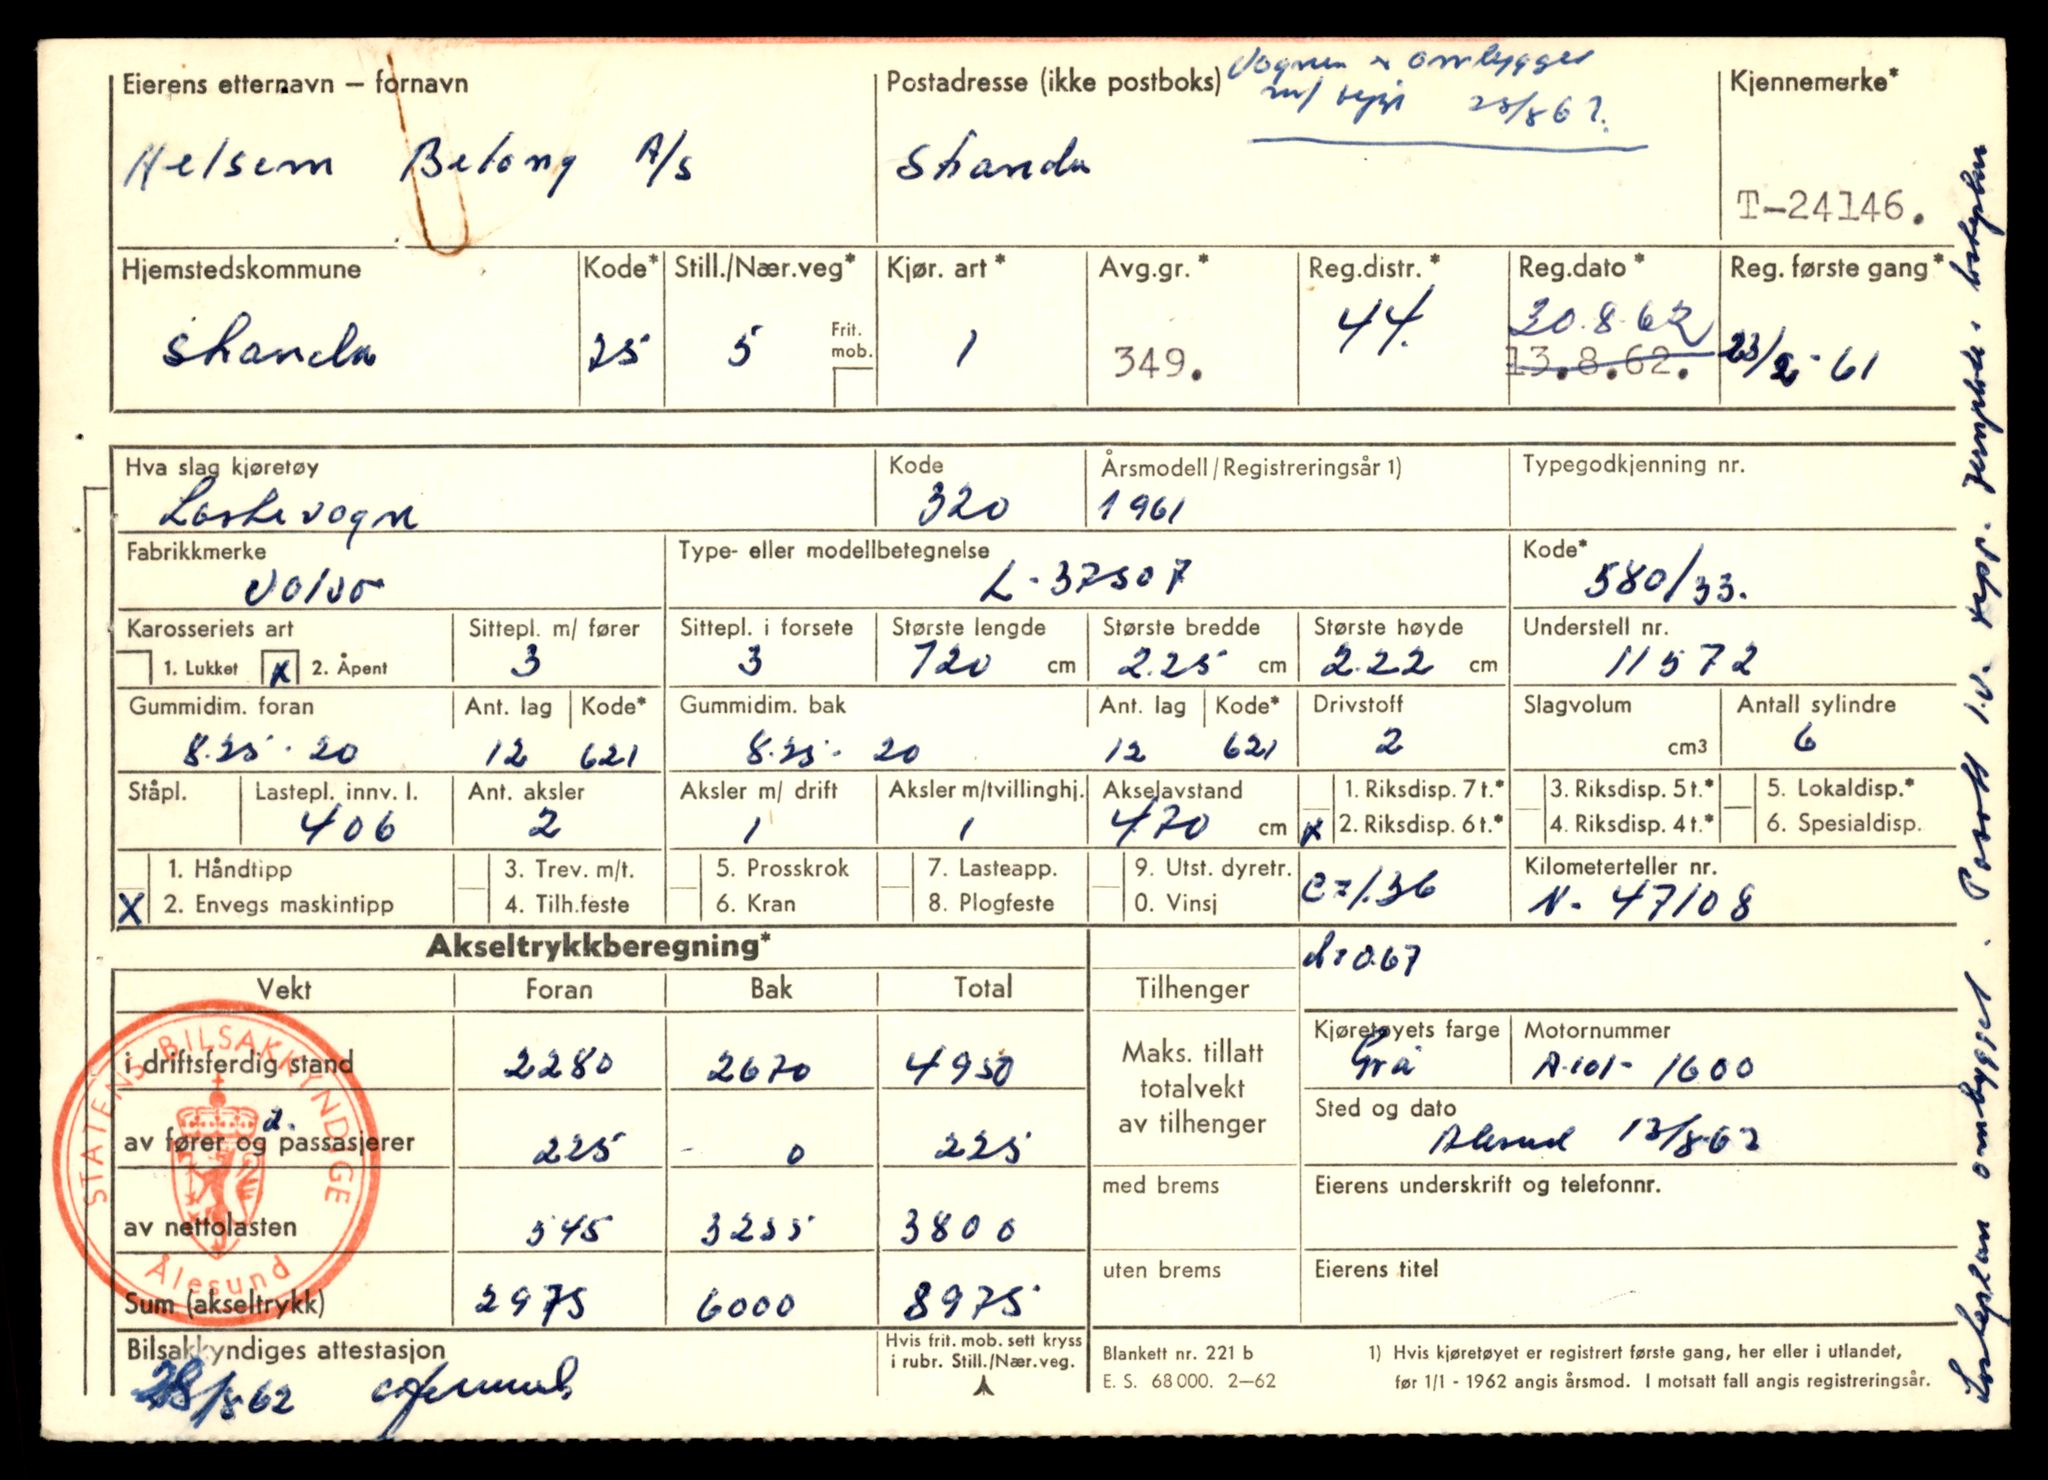 Eierens etternavn – fornavn
Helsem Betong A/s
Postadresse (ikke postboks)
Vognen omlygges
m/ 23/8 62.
Stranda
Kjennemerke*
T-24146.
Hjemstedskommune
Stranda
Kode*
25
Still./Nær.veg*
5
Frit. mob.
Kjør. art*
1
Avg.gr.*
349.
Reg.distr.*
44.
Reg.dato*
30.8.62
13.8.62.
Reg. første gang*
23/2-61
Hva slag kjøretøy
Lastevogn
Kode
320
Årsmodell/Registreringsår 1)
1961
Typegodkjenning nr.
Fabrikkmerke
Volvo
Type- eller modellbetegnelse
L-37507
Kode*
580/33.
Karosseriets art
1. Lukket
x 2. Åpent
Sittepl. m/ fører
3
Sittepl. i forsete
3
Største lengde
720 cm
Største bredde
2.25 cm
Største høyde
2.22 cm
Understell nr.
11572
Gummidim. foran
8.25-20
Ant. lag
12
Kode*
621
Gummidim. bak
8.25-20
Ant. lag
12
Kode*
621
Drivstoff
2
Slagvolum
cm3
Antall sylindre
6
Ståpl.
Lastepl. innv. l.
406
Ant. aksler
2
Aksler m/ drift
1
Aksler m/tvillinghj.
1
Akselavstand
470 cm
1. Riksdisp. 7 t.*
x 2. Riksdisp. 6 t.*
3. Riksdisp. 5 t.*
4. Riksdisp. 4 t.*
5. Lokaldisp.*
6. Spesialdisp.
1. Håndtipp
X 2. Envegs maskintipp
3. Trev. m/t.
4. Tilh.feste
5. Prosskrok
6. Kran
7. Lasteapp.
8. Plogfeste
9. Utst. dyretr.
0. Vinsj
C=1.36
Kilometerteller nr.
N-47108
Akseltrykkberegning*
d=0.67
Vekt Foran Bak Total
i driftsferdig stand 2280 2670 4950
2.
av fører og passasjerer 225 - 0 225
av nettolasten 545 3255 3800
Sum (akseltrykk) 2975 6000 8975
Tilhenger
Maks. tillatt
totalvekt
av tilhenger
med brems
uten brems
Kjøretøyets farge
Grå
Motornummer
A-101-1600
Sted og dato
Ålesund 13/8-62
Eierens underskrift og telefonnr.
Eierens titel
STATENS BILSAKKYNDIGE
Ålesund
Bilsakkyndiges attestasjon
28/8 62
Hvis frit. mob. sett kryss
i rubr. Still./Nær.veg.
Blankett nr. 221 b
E. S. 68 000. 2–62
1) Hvis kjøretøyet er registrert første gang, her eller i utlandet,
før 1/1 - 1962 angis årsmod. I motsatt fall angis registreringsår.
Lasteplan ombygget. Påsatt 1.v. tipp.